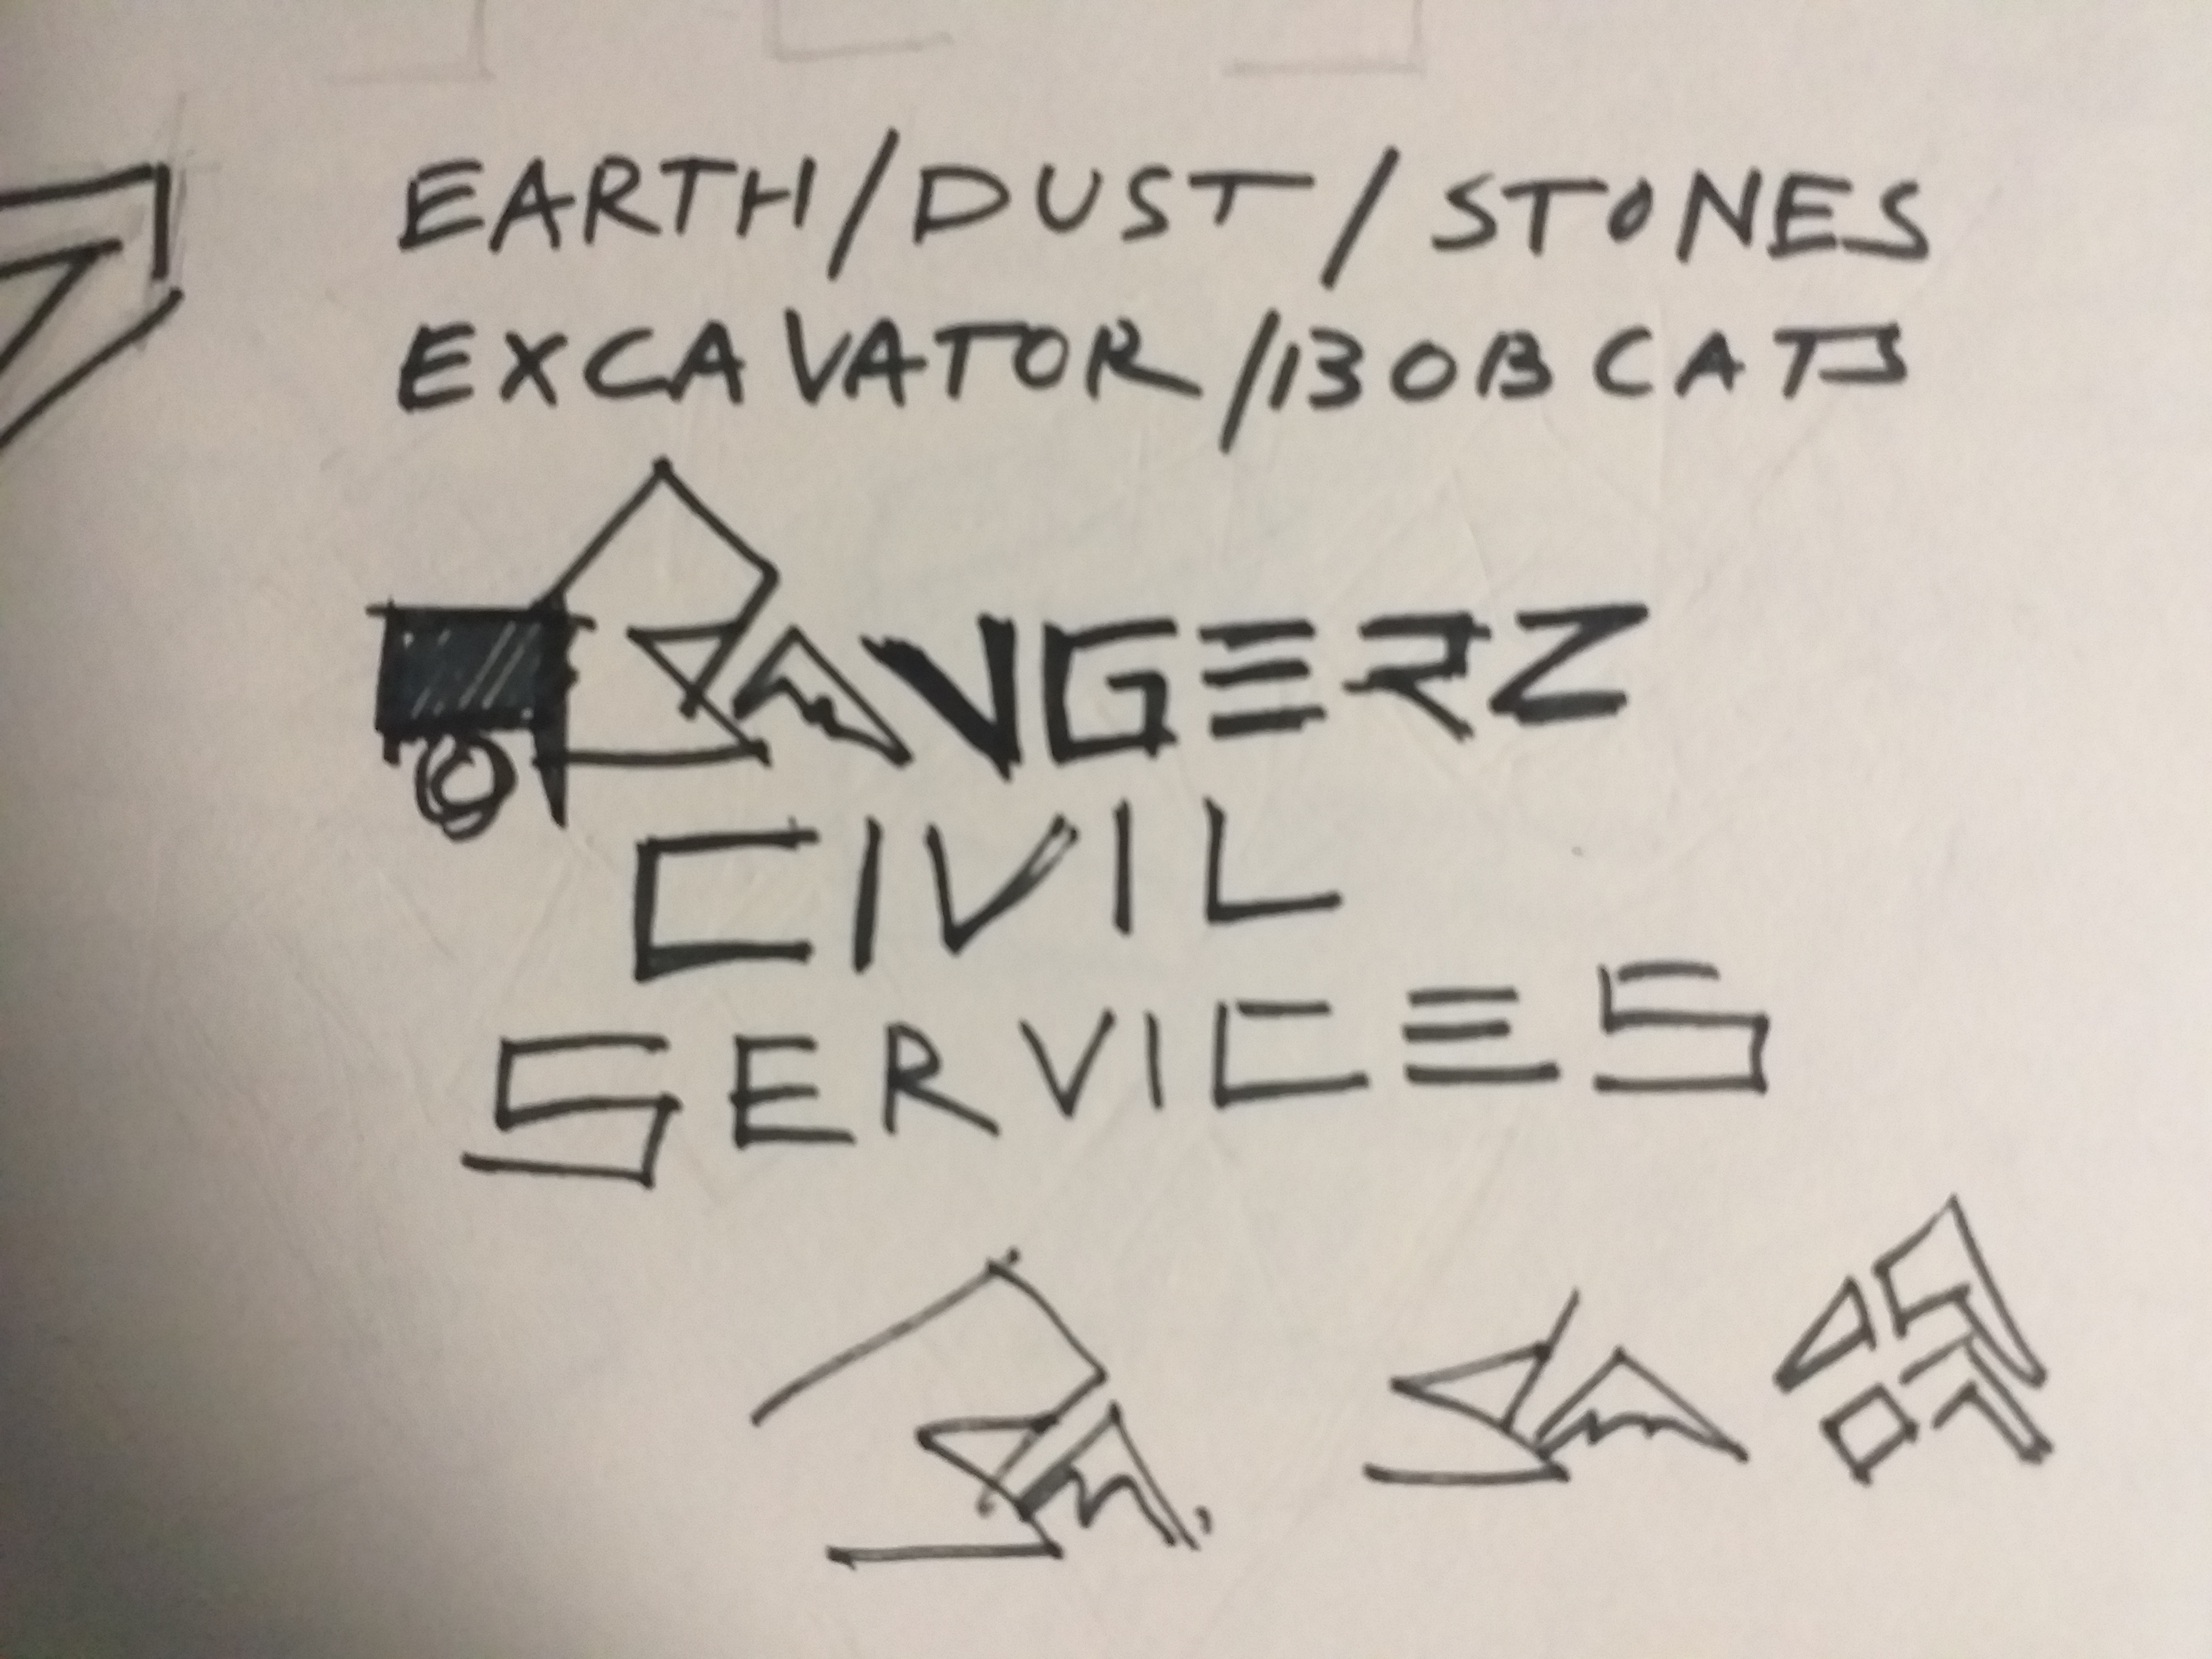 EARTH/DUST/STONES
EXCAVATOR/BOBCATS
RANGERZ
CIVIL
SERVICES